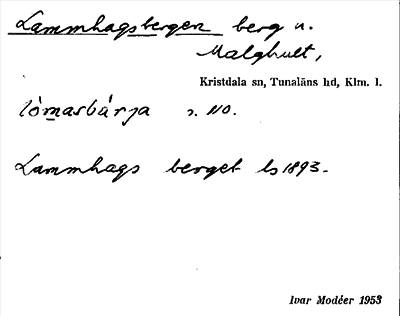 Lammhagsbergen berg n.
Malghult,
Kristdala sn, Tunaläns hd, Klm. l.
lòmasbárja n. NO.
Lammhags berget ls 1893.
Ivar Modéer 1953